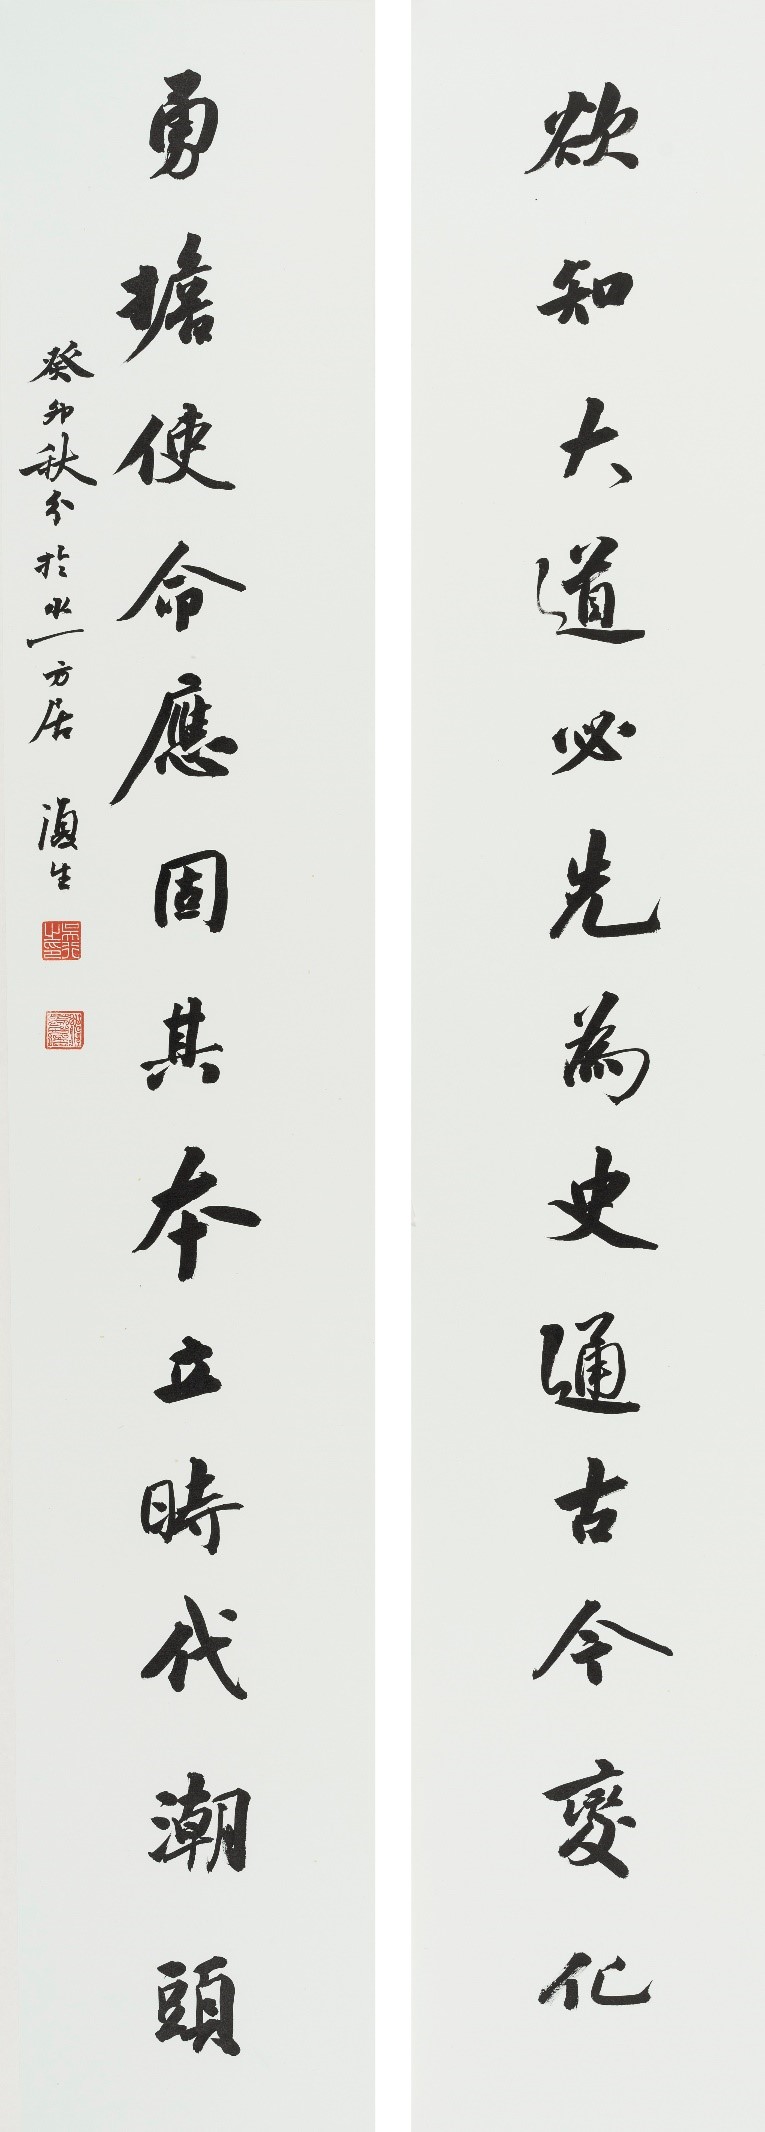 欲知大道必先為史通古今變化
勇擔使命應固其本立時代潮頭
癸卯秋分於水一方居 湏生